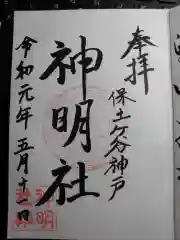 奉拝
保土ヶ谷神戸
神明社
令和元年五月十二日